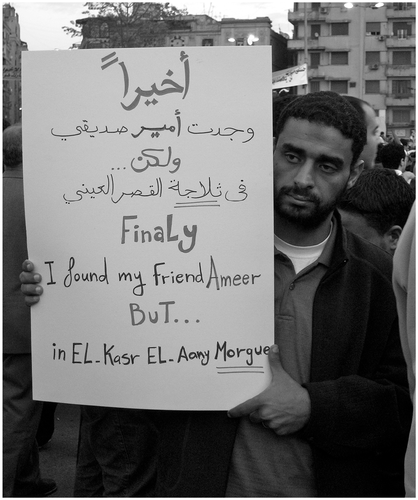 أخيراً
وجدت أمير صديقي
ولكن...
في ثلاجة القصر العيني
FinaLy
I found my Friend Ameer
BuT...
in EL-Kasr EL-Aany Morgue